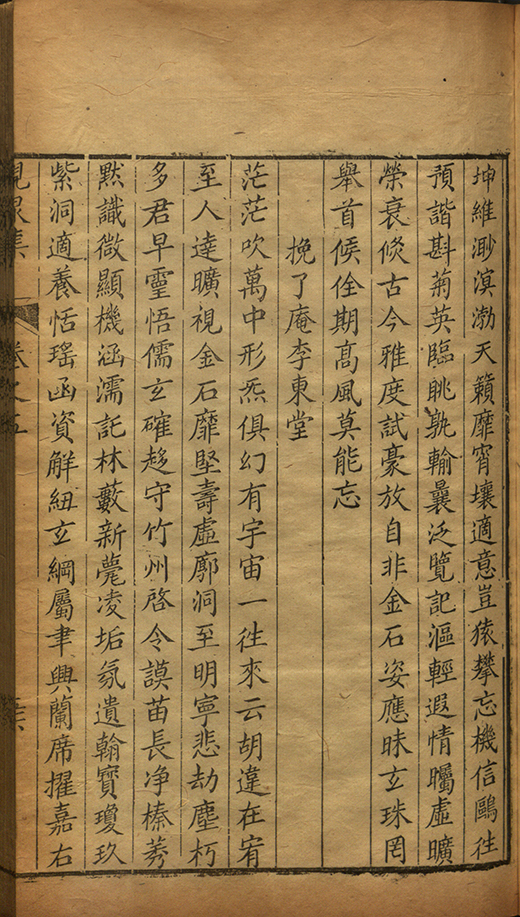 坤維渺溟渤天籟靡宵壤適意豈猿攀忘機信鷗徃
預諧斟菊英臨眺孰輸曩泛覽記漚輕遐情矚虛曠
榮衰倐古今雅度試豪放自非金石姿應昧玄珠罔
舉首候佺期高風莫能忘
挽了庵李東堂
茫茫吹萬中形炁俱幻有宇宙一徃來云胡違在宥
至人達曠視金石靡堅壽虛廓洞至明寧悲劫塵朽
多君早靈悟儒玄確趍守竹州啓令謨苗長净榛莠
黙識微顯機涵濡託林藪新薨凌垢氛遺翰寳瓊玖
紫洞適養恬瑶函資觧紐玄綱屬聿興蘭席擢嘉右
峴泉集
卷之五